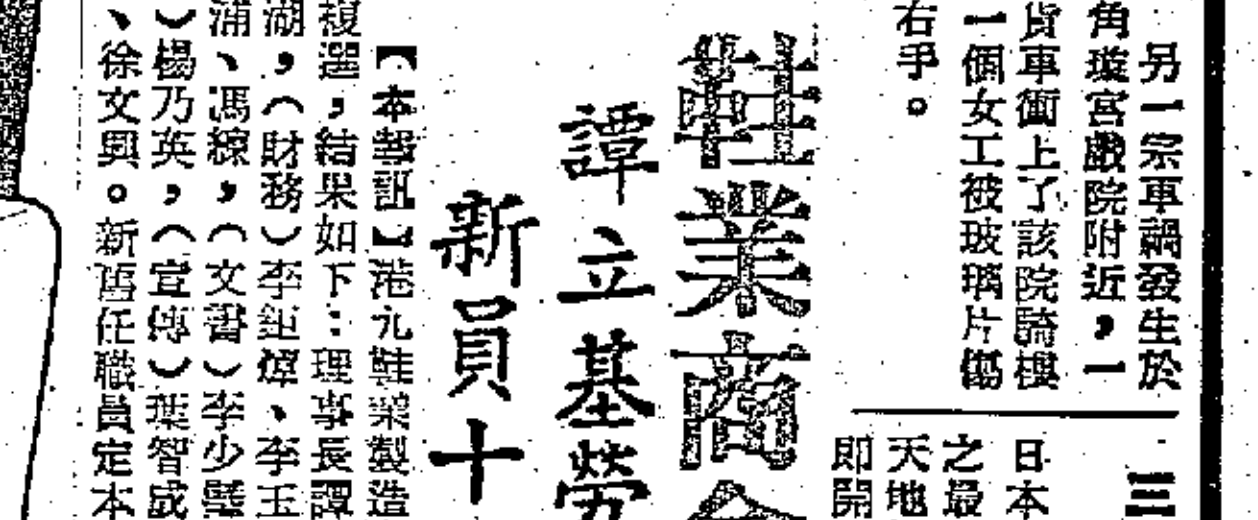 另一宗車禍發生於
角璇宮戲院附近，一
貨車衝上了該院騎樓
一個女工被玻璃片傷
右手。
三
日本
之最
天地
即開
鞋業商會
譚立基勞
新員十
【本報訊】港九鞋業製造
複選，結果如下：理事長譚
湖，（財務）李鉅燁、李玉
浦、馮線，（文書）李少
）楊乃英，（宣傳）葉智成
、徐文興。新舊任職員定本